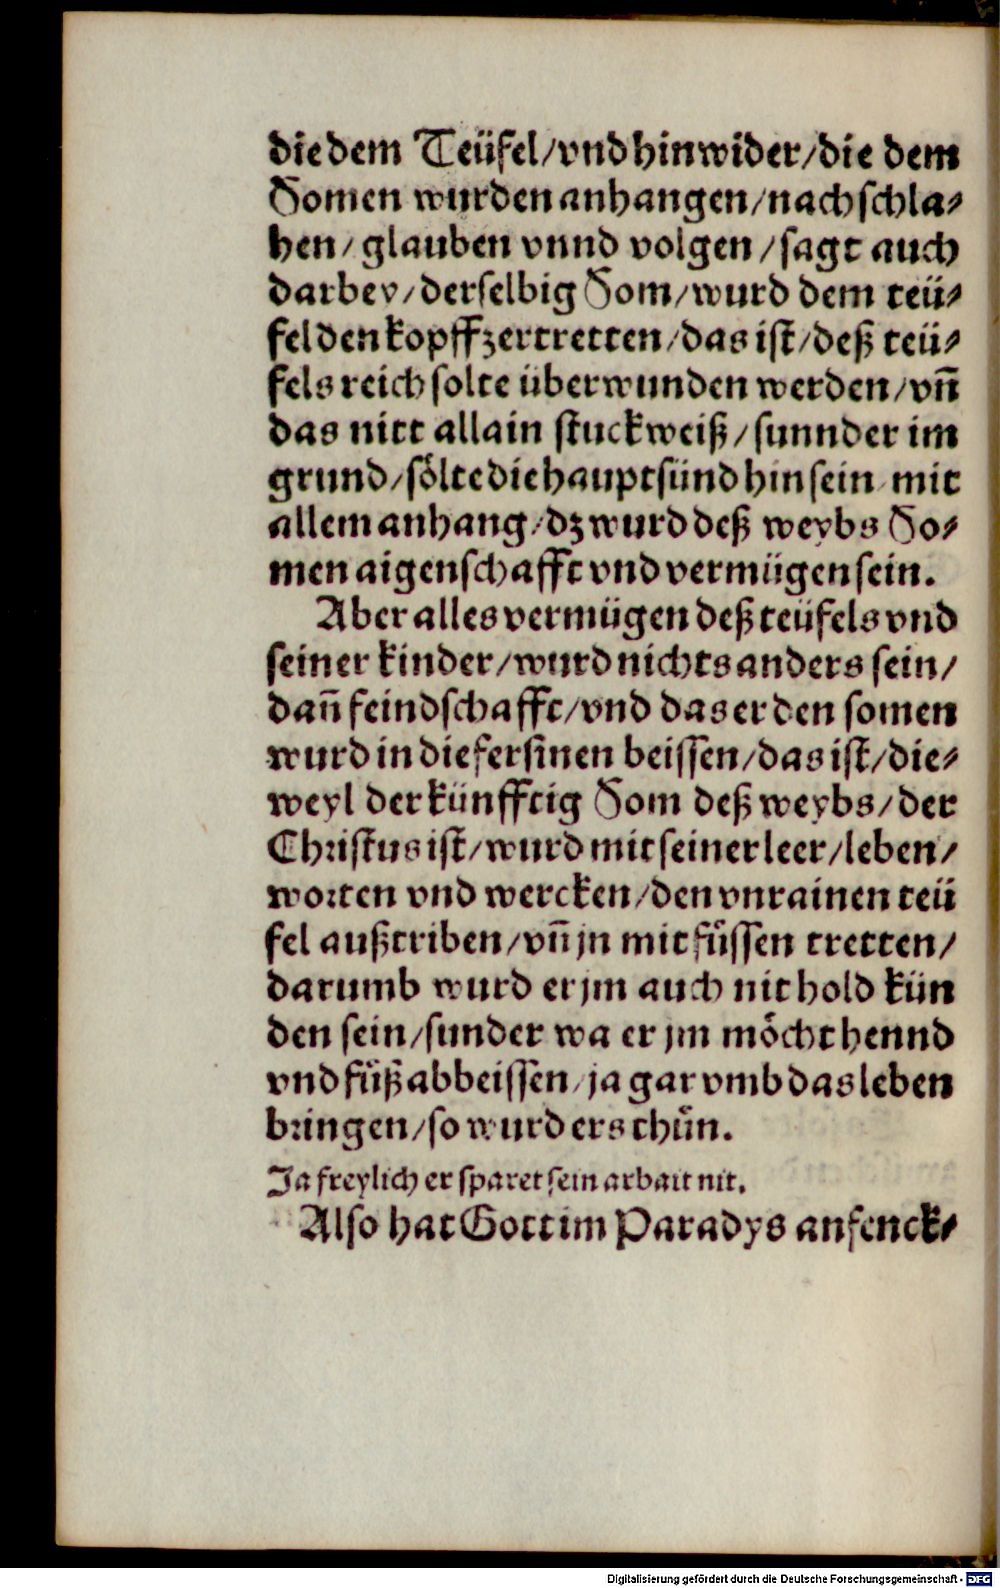 die dem Teüfel/vnd hinwider/die dem
Somen wurden anhangen/nach schla⸗
hen/ glauben vnnd volgen /sagt auch
darbey/derselbig Som/wurd dem teü⸗
fel den kopff zertretten/das ist/deß teü⸗
fels reich solte überwunden werden/vñ
das nitt allain stuckweiß/sunnder im
grund/sölte die hauptsünd hin sein/mit
allem anhang/dz wurd deß weybs So⸗
men aigenschafft vnd vermügen sein.
Aber alles vermügen deß teüfels vnd
seiner kinder/wurd nichts anders sein/
dañ feindschafft/vnd das er den somen
wurd in die fersinen beissen/das ist/die⸗
weyl der künfftig Som deß weybs/der
Christus ist/wurd mit seiner leer/leben/
worten vnd wercken/den vnrainen teü
fel außtriben/vñ jn mit füssen tretten/
darumb wurd er jm auch nit hold kün
den sein/sunder wa er jm möcht hennd
vnd füß abbeissen/ja gar vmb das leben
bringen/so wurd ers thůn.
Ja freylich er sparet sein arbait nit.
Also hat Gott im Paradys anfenck⸗
Digitalisierung gefördert durch die Deutsche Forschungsgemeinschaft - DFG